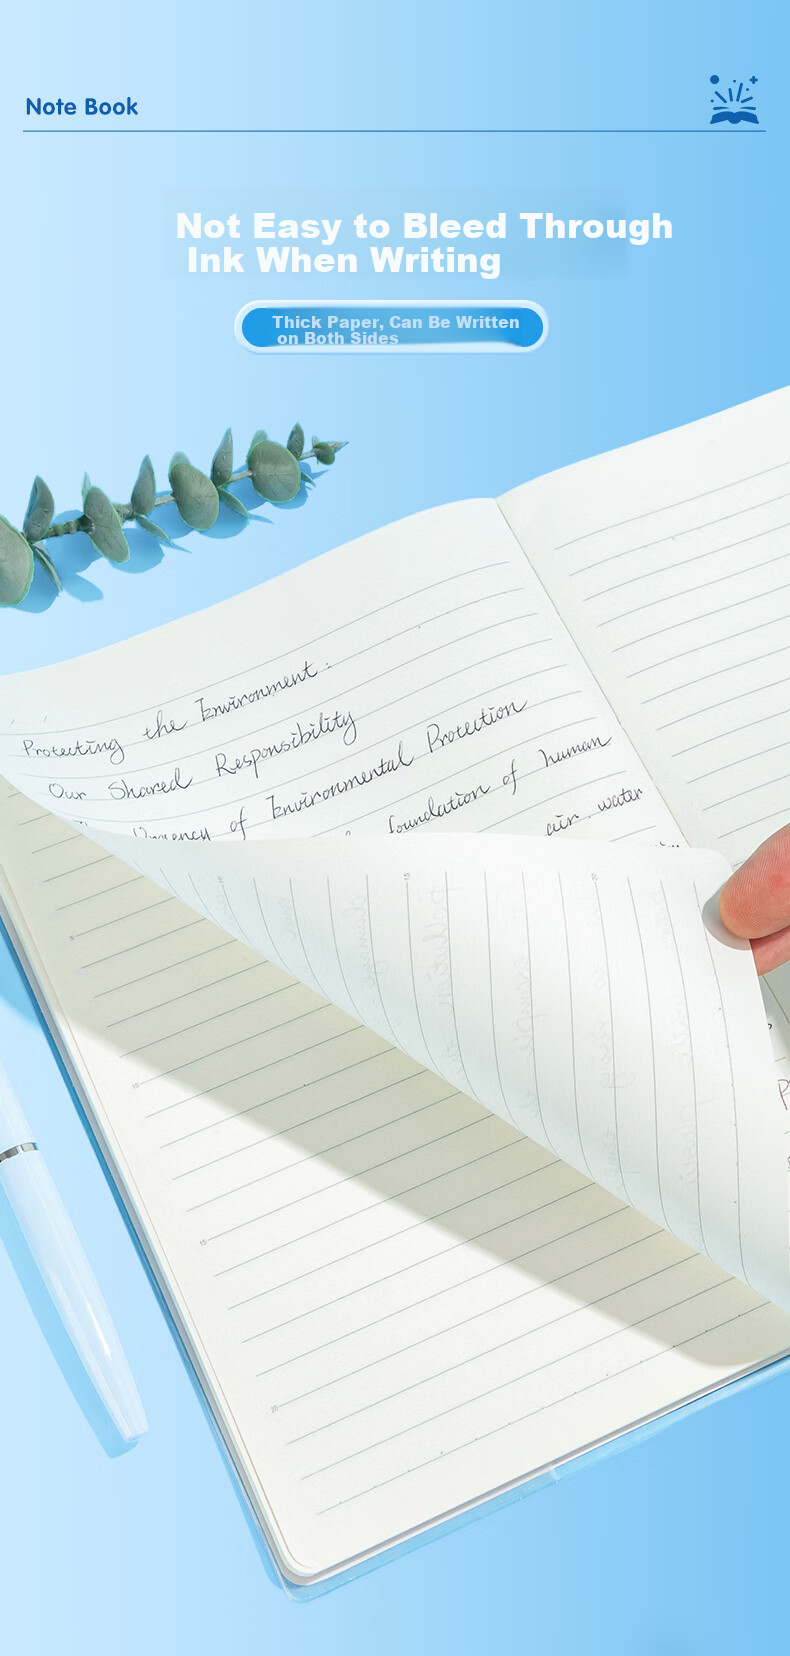 Note Book
Not Easy to Bleed Through
Ink When Writing
Thick Paper, Can Be Written
on Both Sides
Protecting the Environment:
Our Shared Responsibility
Urgency of Environmental Protection
foundation of human
air. water
5
10
15
20
15
20